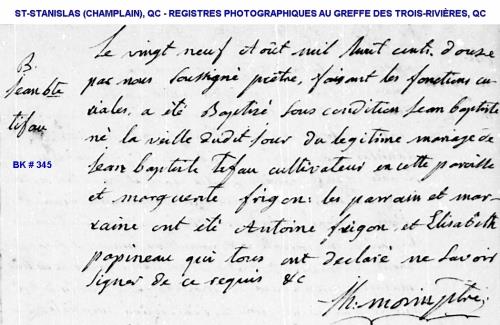 ST-STANISLAS (CHAMPLAIN), QC - REGISTRES PHOTOGRAPHIQUES AU GREFFE DES TROIS-RIVIÈRES, QC
B.
Jean bte
tifau
BK # 345
Le vingt neuf Août mil huit cents douze
par nous soussigné prêtre, faisant les fonctions cu-
riales, a été Baptizé sous condition Jean baptiste
né la veille dudit jour du legitime mariage de
Jean baptiste Tifau cultivateur en cette paroisse
et marguerite frigon: les parrain et mar-
raine ont été Antoine frigon et Elisabeth
papineau qui tous ont declaré ne savoir
signer de ce requis &c
morin ptre